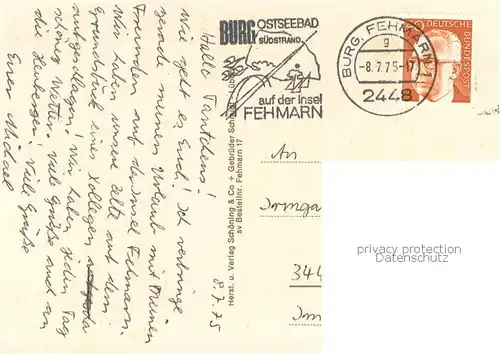 8.7.75
Hallo Tantchens!
Wie geht es Euch! Ich verbringe
gerade meinen Urlaub mit meinen
Freunden auf der Insel Fehmarn.
Wir haben unsere Zelte auf dem
Grundstück eines Kollegen
aufgeschlagen! Wir haben jeden Tag
schönes Wetter. Viele Grüße auch an
die Viele Grüße
Euer Michael
BURG OSTSEEBAD
SÜDSTRAND
auf der Insel
FEHMARN
BURG, FEHMARN 1
g
-8.7.75-17
2448
DEUTSCHE
BUNDESPOST
Herst. u. Verlag Schöning & Co + Gebrüder Schmidt
sv Bestellnr. Fehmarn 17
An
Irmga
344
privacy protection
Datenschutz